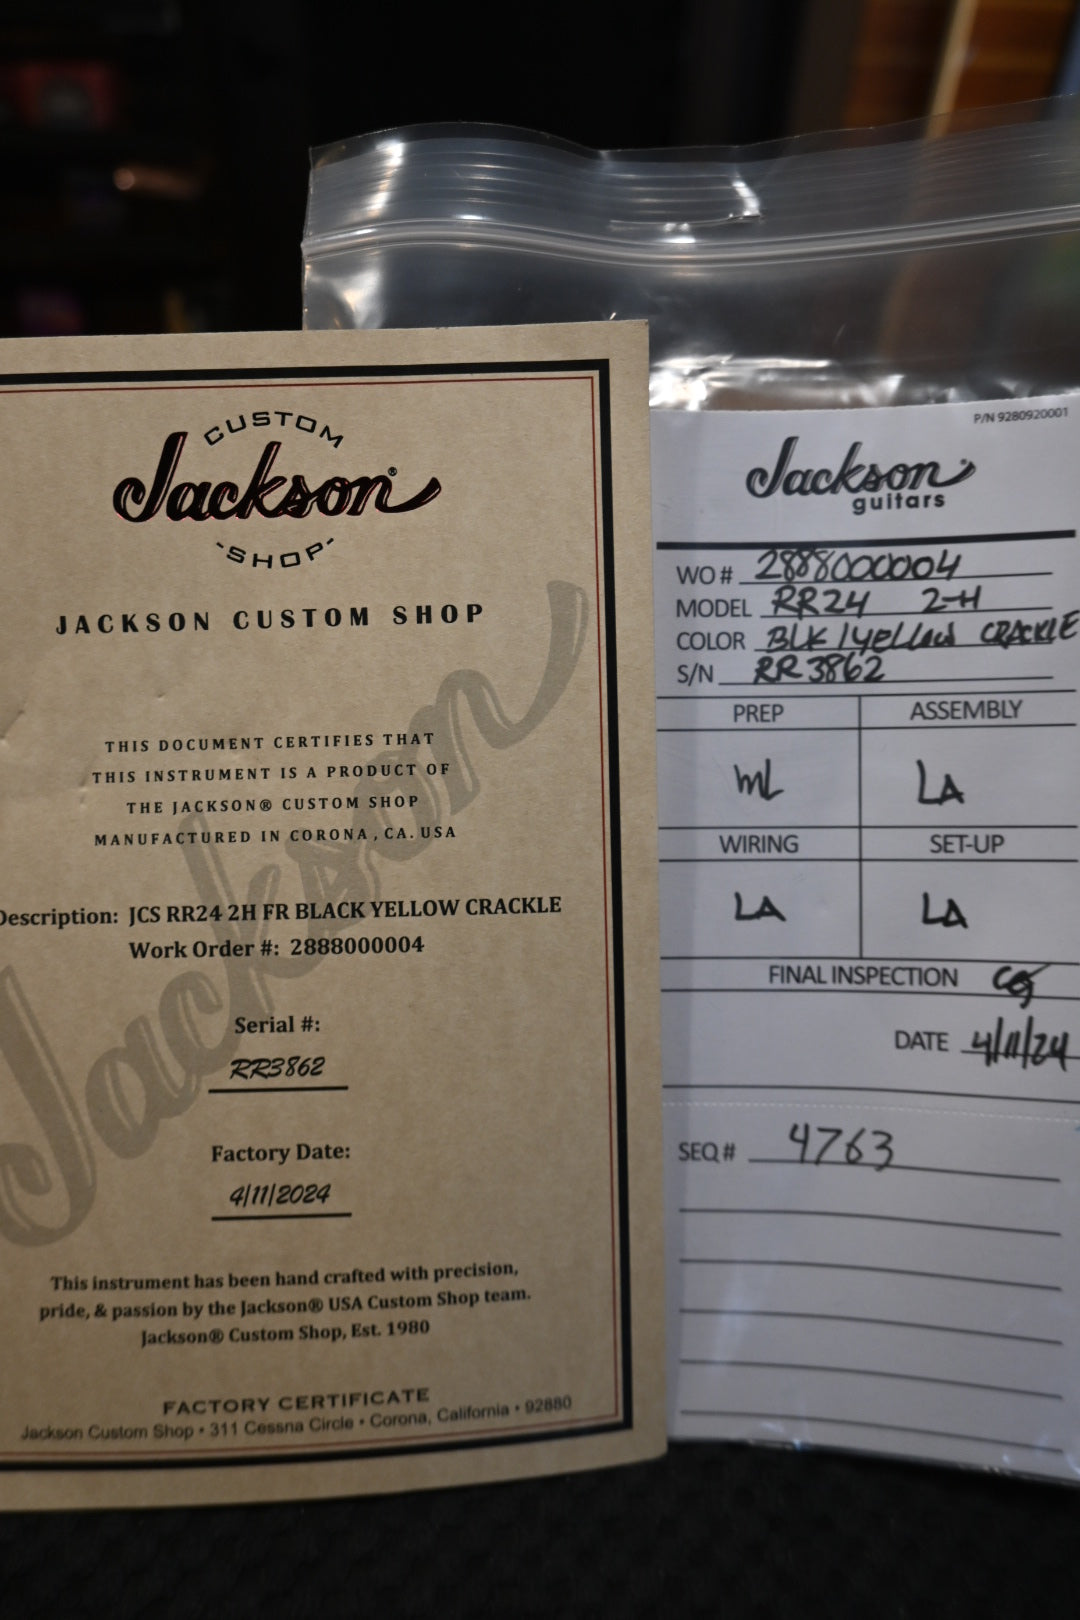 CUSTOM
Jackson®
SHOP
JACKSON CUSTOM SHOP
THIS DOCUMENT CERTIFIES THAT
THIS INSTRUMENT IS A PRODUCT OF
THE JACKSON® CUSTOM SHOP
MANUFACTURED IN CORONA, CA. USA
Jackson
Description: JCS RR24 2H FR BLACK YELLOW CRACKLE
Work Order #: 2888000004
Serial #:
RR3862
Factory Date:
4/11/2024
This instrument has been hand crafted with precision,
pride, & passion by the Jackson® USA Custom Shop team.
Jackson® Custom Shop, Est. 1980
FACTORY CERTIFICATE
Jackson Custom Shop • 311 Cessna Circle • Corona, California • 92880
P/N 9280920001
Jackson
guitars
WO # 2888000004
MODEL RR24 2-H
COLOR BLK/YELLOW CRACKLE
S/N RR3862
PREP ASSEMBLY
ML LA
WIRING SET-UP
LA LA
FINAL INSPECTION
DATE 4/11/24
SEQ # 4763